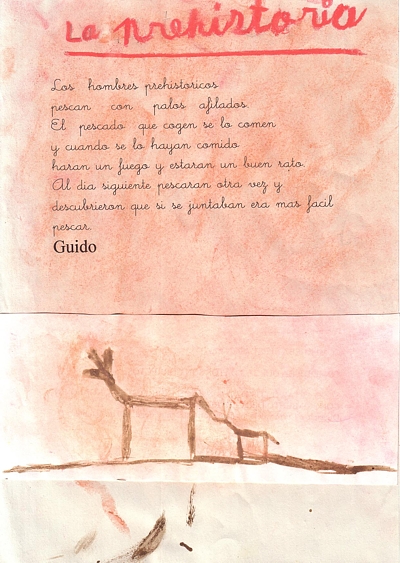 La prehistoria
Los hombres prehistoricos
pescan con palos afilados.
El pescado que cogen se lo comen
y cuando se lo hayan comido
haran un fuego y estaran un buen rato.
Al dia siguiente pescaran otra vez y
descubrieron que si se juntaban era mas facil
pescar.
Guido